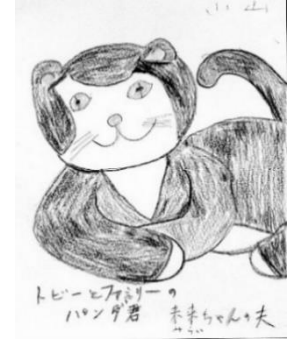 小山
トビーとファミリーの
パンダ君 未来ちゃんの夫